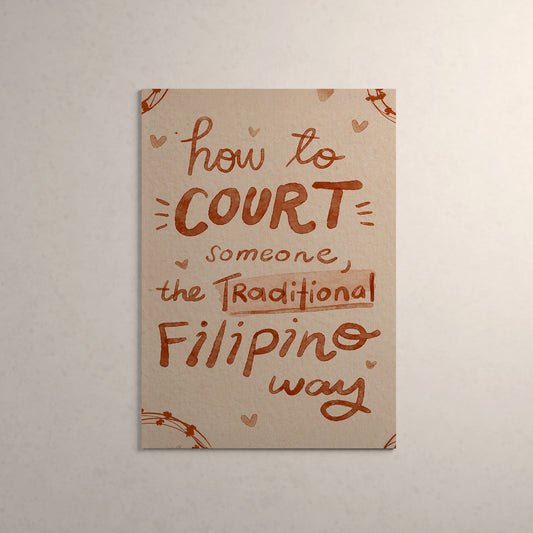 how to
COURT
someone,
the Traditional
Filipino
way